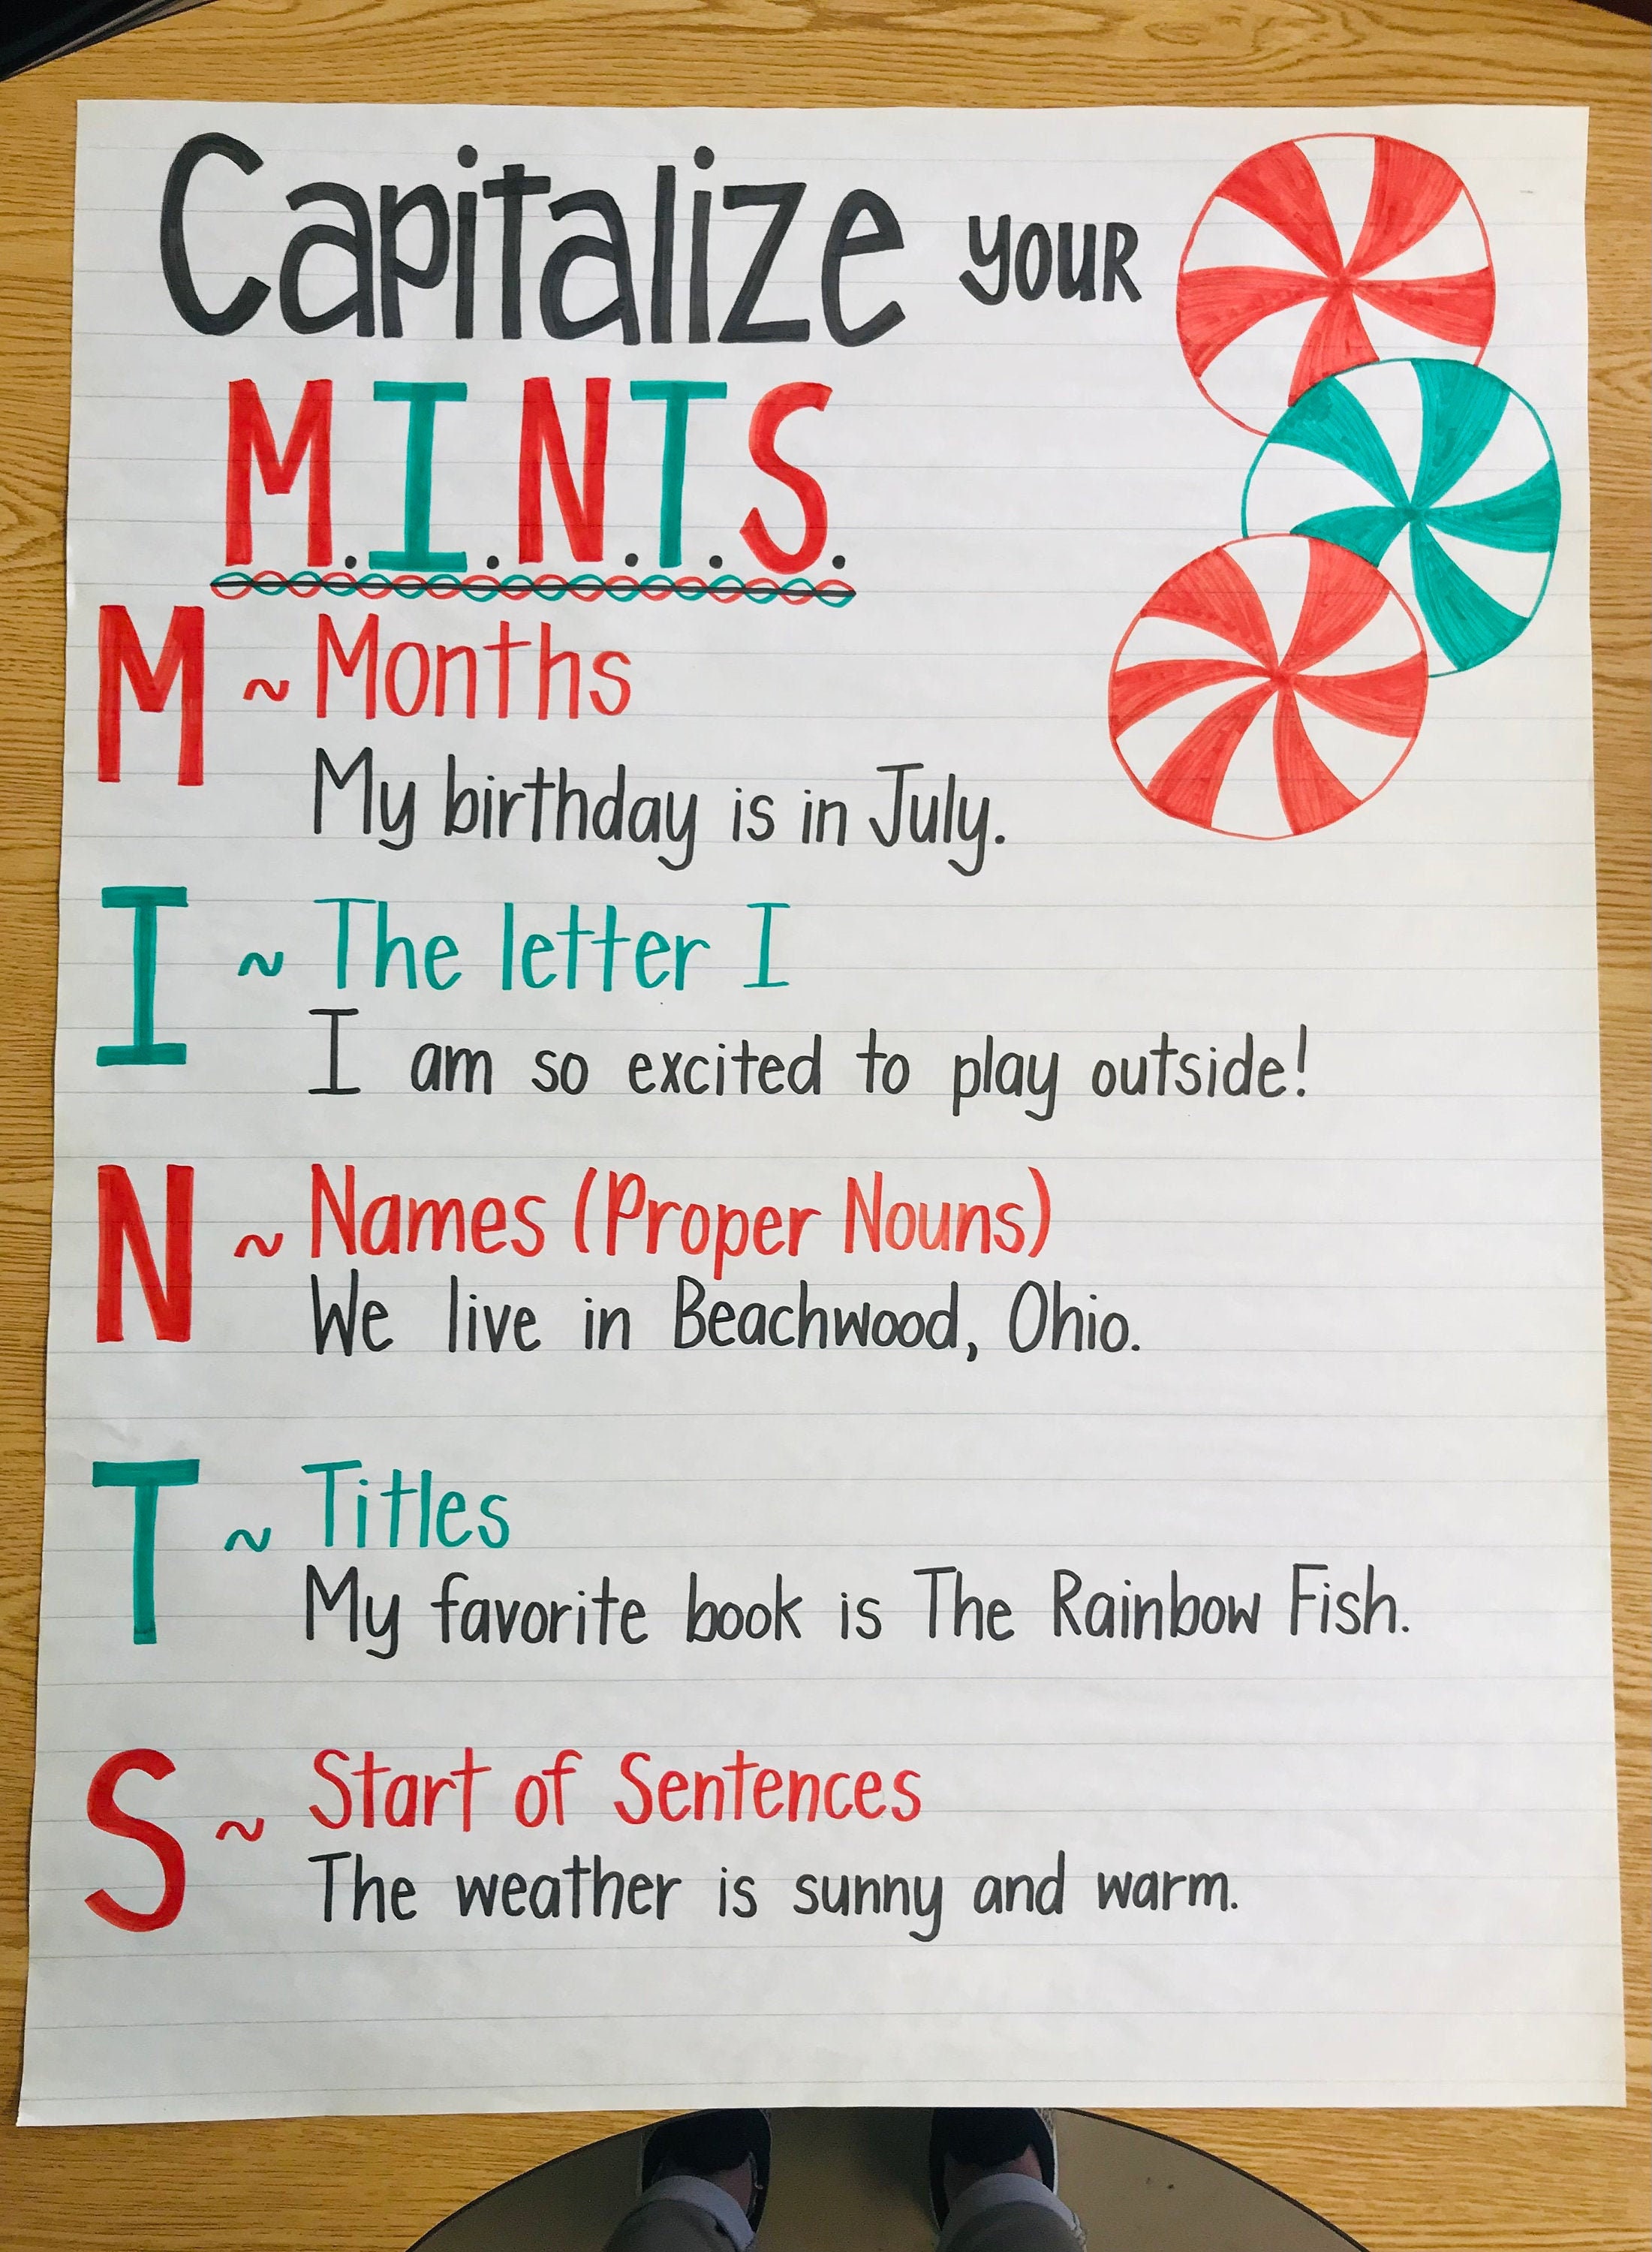 Capitalize YOUR
M.I.N.T.S.
M ~ Months
My birthday is in July.
I ~ The letter I
I am so excited to play outside!
N ~ Names (Proper Nouns)
We live in Beachwood, Ohio.
T ~ Titles
My favorite book is The Rainbow Fish.
S ~ Start of Sentences
The weather is sunny and warm.